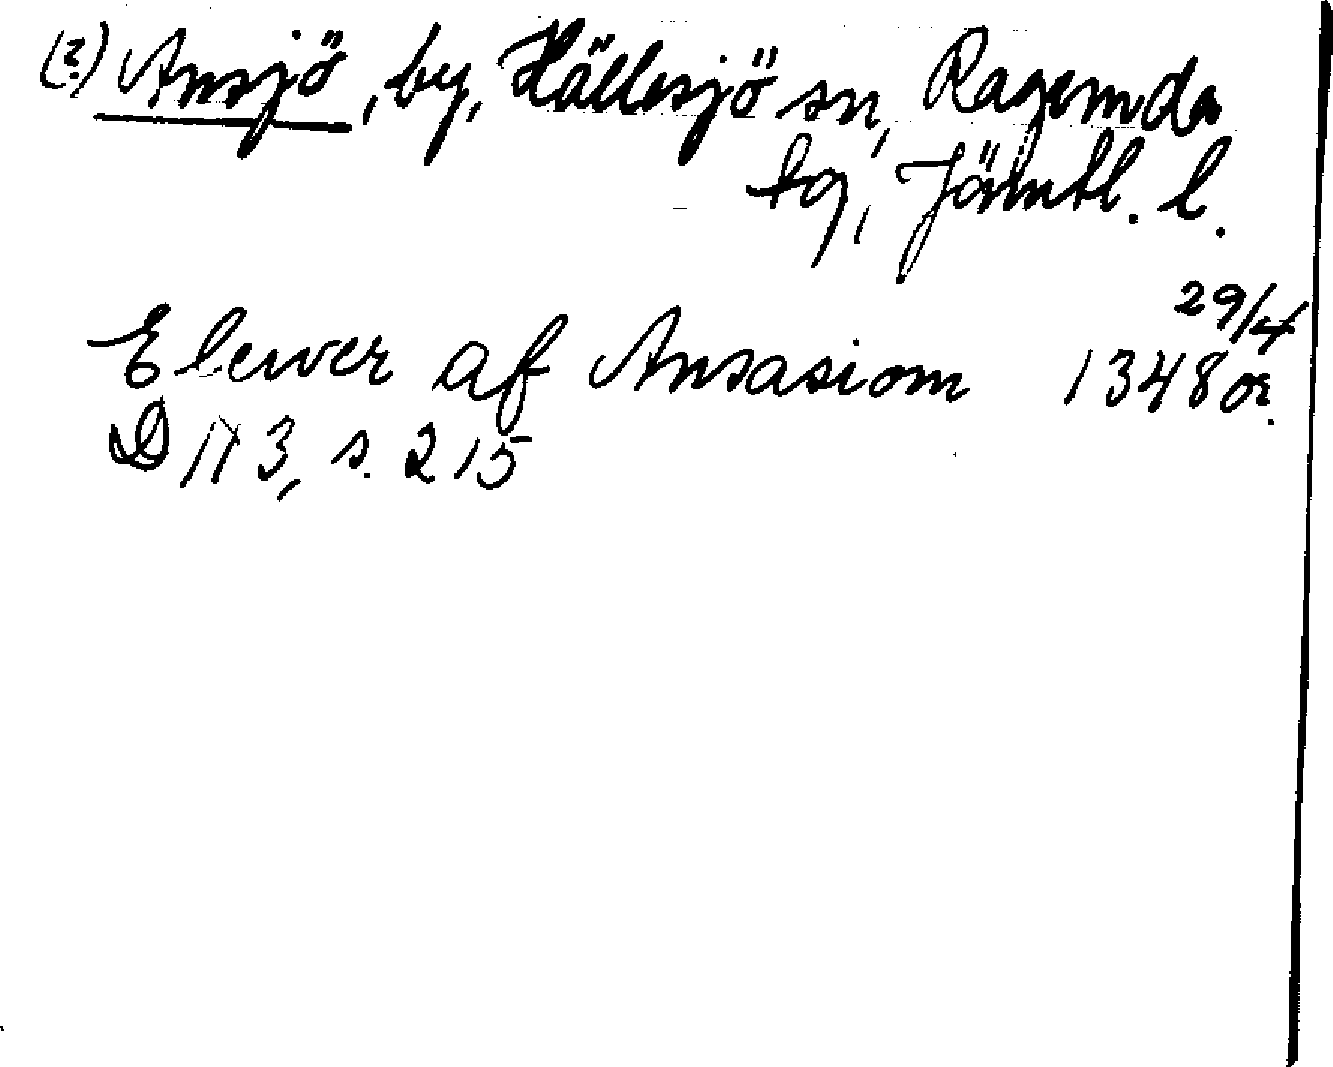 (?) Ansjö, by, Hällesjö sn, Ragunda
tg, Jämtl. l.
Elewer af Ansasiom 1348 29/4 or.
DN 3, s. 215